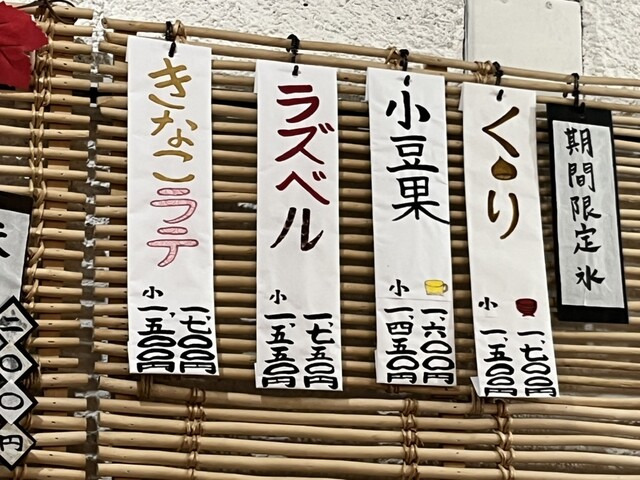 期間限定氷
くり
一、七〇〇円
小 一、五〇〇円
小豆果
一、六〇〇円
小 一、四五〇円
ラズベル
一、七五〇円
小 一、五五〇円
きなこラテ
一、七〇〇円
小 一、五〇〇円
二〇〇円